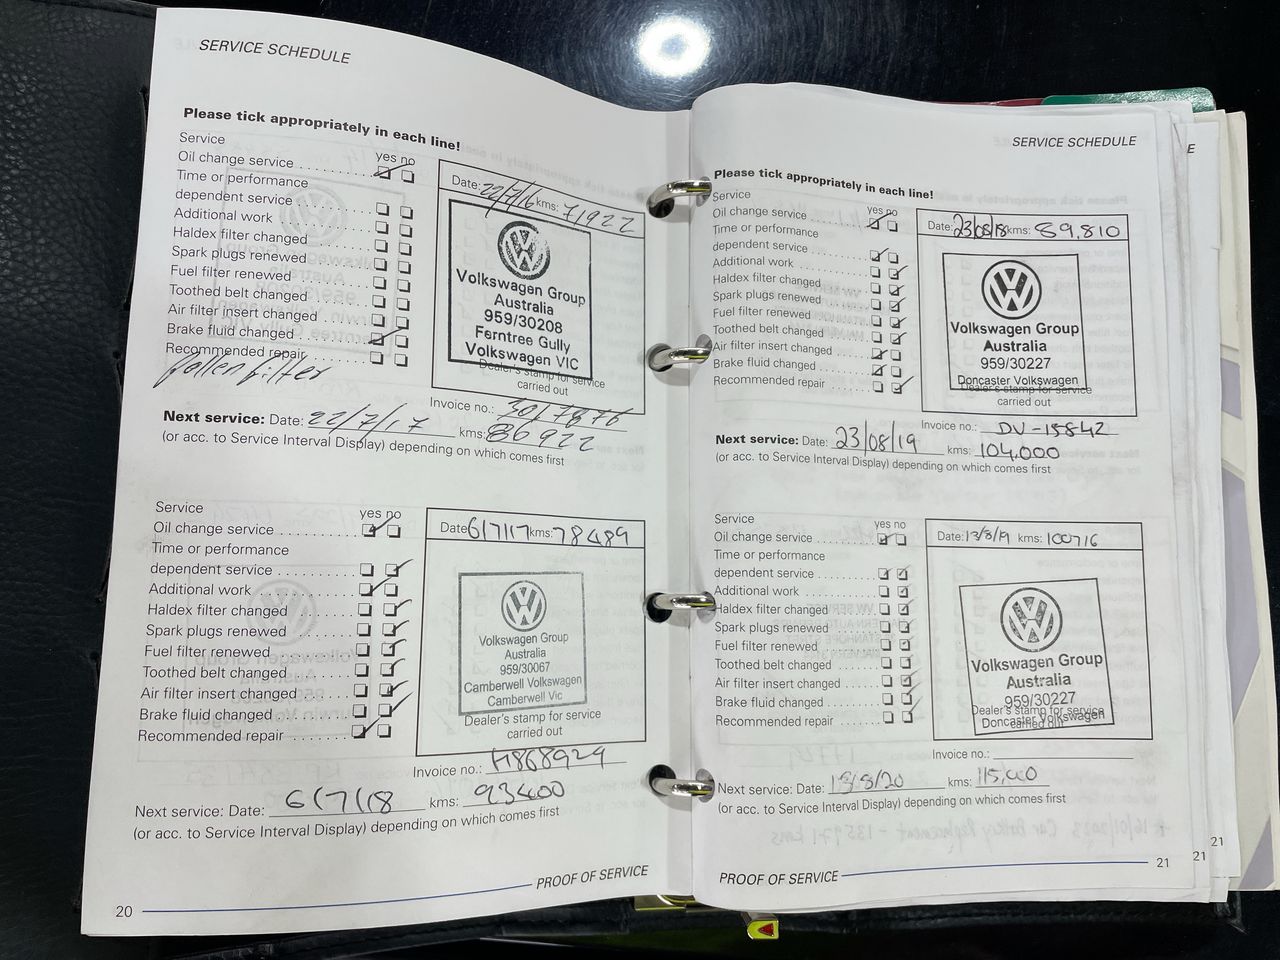 SERVICE SCHEDULE
Please tick appropriately in each line!
Service
yes no
Oil change service
Time or performance
dependent service
Additional work
Haldex filter changed
Spark plugs renewed
Fuel filter renewed
Toothed belt changed
Air filter insert changed
Brake fluid changed
Recommended repair
Pollen filter
Date: 22/7/16 kms: 71922
Volkswagen Group
Australia
959/30208
Ferntree Gully
Volkswagen VIC
Dealer's stamp for service
carried out
Invoice no.: 3017876
Next service: Date: 22/7/17 kms: 86922
(or acc. to Service Interval Display) depending on which comes first
Service
yes no
Oil change service
Time or performance
dependent service
Additional work
Haldex filter changed
Spark plugs renewed
Fuel filter renewed
Toothed belt changed
Air filter insert changed
Brake fluid changed
Recommended repair
Date 6/7/17 kms: 78489
Volkswagen Group
Australia
959/30067
Camberwell Volkswagen
Camberwell Vic
Dealer's stamp for service
carried out
Invoice no.: H868929
Next service: Date: 6/7/18 kms: 93400
(or acc. to Service Interval Display) depending on which comes first
PROOF OF SERVICE
20
SERVICE SCHEDULE
Please tick appropriately in each line!
Service
yes no
Oil change service
Time or performance
dependent service
Additional work
Haldex filter changed
Spark plugs renewed
Fuel filter renewed
Toothed belt changed
Air filter insert changed
Brake fluid changed
Recommended repair
Date: 23/08/18 kms: 89,810
Volkswagen Group
Australia
959/30227
Doncaster Volkswagen
Dealer's stamp for service
carried out
Invoice no.: DV-15842
Next service: Date: 23/08/19 kms: 104,000
(or acc. to Service Interval Display) depending on which comes first
Service
yes no
Oil change service
Time or performance
dependent service
Additional work
Haldex filter changed
Spark plugs renewed
Fuel filter renewed
Toothed belt changed
Air filter insert changed
Brake fluid changed
Recommended repair
Date: 13/8/19 kms: 100716
Volkswagen Group
Australia
959/30227
Dealer's stamp for service
Doncaster Volkswagen
carried out
Invoice no.:
Next service: Date: 13/8/20 kms: 115,000
(or acc. to Service Interval Display) depending on which comes first
PROOF OF SERVICE
21
21
21
E